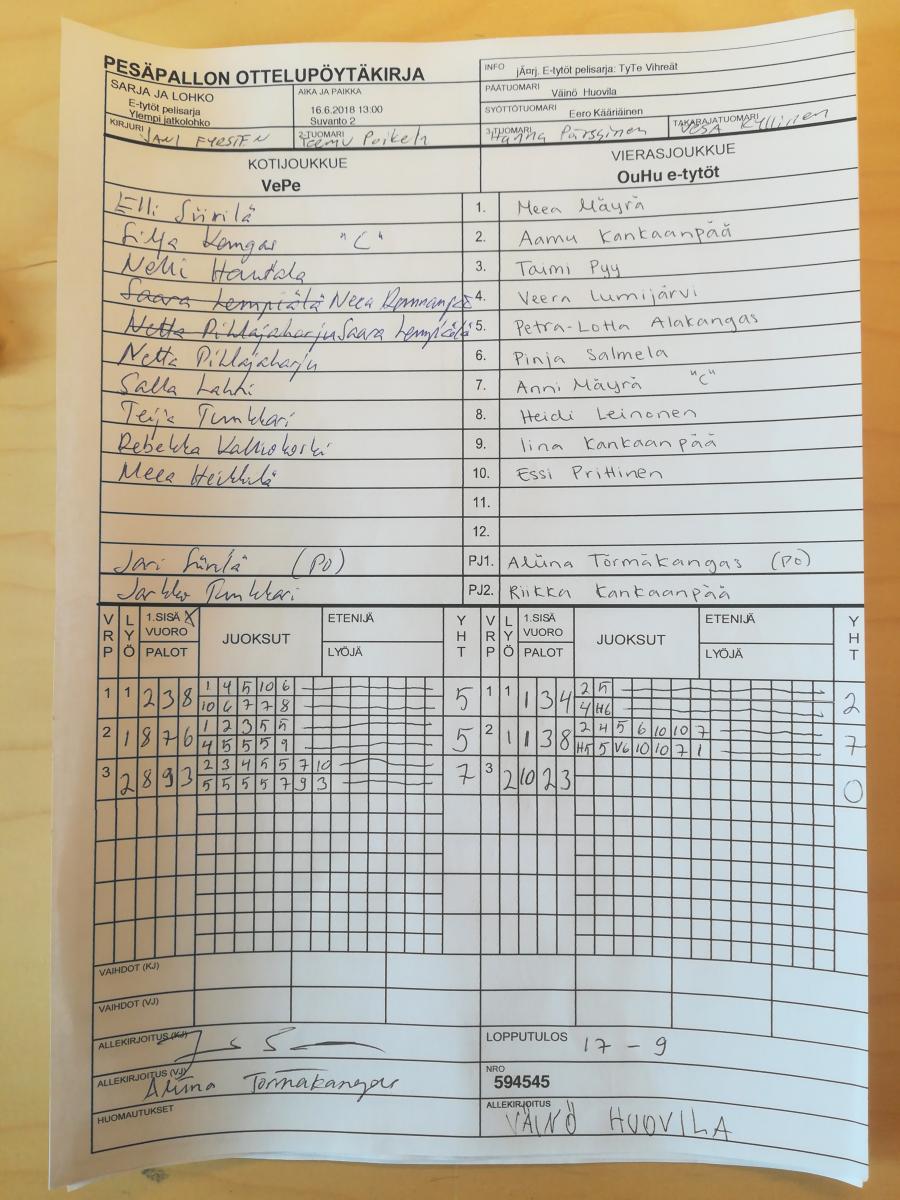 PESÄPALLON OTTELUPÖYTÄKIRJA
SARJA JA LOHKO
E-tytöt pelisarja
Ylempi jatkolohko
AIKA JA PAIKKA
16.6.2018 13:00
Suvanto 2
INFO jÃ¤rj. E-tytöt pelisarja: TyTe Vihreät
PÄÄTUOMARI Väinö Huovila
SYÖTTÖTUOMARI Eero Kääriäinen
KIRJURI JANI FYRSTEN
2-TUOMARI Teemu Poikela
3-TUOMARI Hanna Pärssinen
TAKARAJATUOMARI VESA KYLLINEN
KOTIJOUKKUE
VePe
VIERASJOUKKUE
OuHu e-tytöt
Elli Siirilä 1. Meea Mäyrä
Silja Kangas "C" 2. Aamu Kankaanpää
Nelli Hautala 3. Taimi Pyy
Saara Lempiälä Neea 4. Veera Lumijärvi
Netta Pihlajaharju Saara Lempiälä 5. Petra-Lotta Alakangas
Netta Pihlajaharju 6. Pinja Salmela
Salla Lahti 7. Anni Mäyrä "C"
Teija Tunkkari 8. Heidi Leinonen
Rebekka Kalliokoski 9. Iina Kankaanpää
Meea Heikkilä 10. Essi Prittinen
11.
12.
Jari Siirilä (PO) PJ1. Aliina Törmäkangas (PO)
Jarkko Tunkkari PJ2. Riikka Kankaanpää
VRP LYÖ 1.SISÄ X VUORO PALOT JUOKSUT ETENIJÄ LYÖJÄ YHT VRP LYÖ 1.SISÄ VUORO PALOT JUOKSUT ETENIJÄ LYÖJÄ YHT
1 1 2 3 8 1 4 5 10 6 5 1 1 1 3 4 2 5 2
10 6 7 7 8 4 H6
2 1 8 7 6 1 2 3 5 5 5 2 1 1 3 8 2 4 5 6 10 10 7 7
4 5 5 5 9 H5 5 V6 10 10 7 1
3 2 8 9 3 2 3 4 5 5 7 10 7 3 2 10 2 3 0
5 5 5 5 7 9 3
VAIHDOT (KJ)
VAIHDOT (VJ)
ALLEKIRJOITUS (KJ)
LOPPUTULOS 17 - 9
ALLEKIRJOITUS (VJ) Aliina Törmäkangas
NRO
594545
HUOMAUTUKSET
ALLEKIRJOITUS VÄINÖ HUOVILA